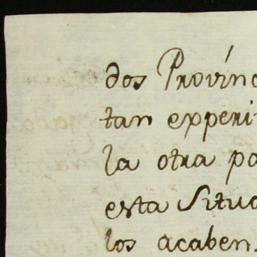 dos Provínc
tan experi
la otra po
esta Situa
los acaben.